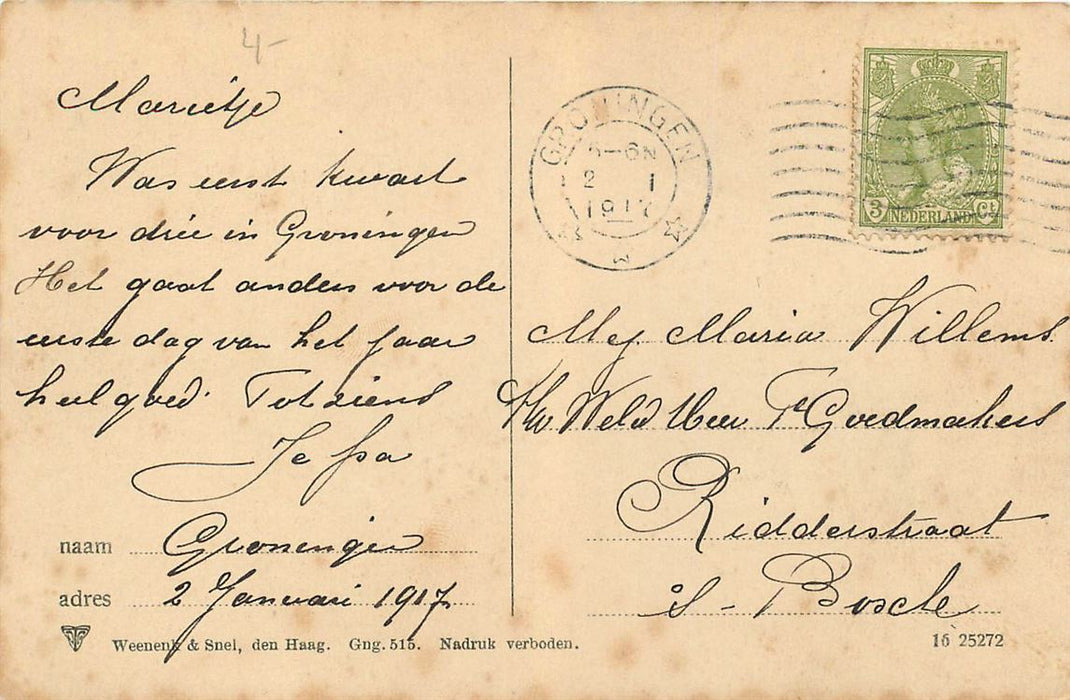 4-
Marietje
Was eerst kwart
voor drie in Groningen
Het gaat anders voor de
eerste dag van het jaar
heel goed. Tot ziens
Je pa
naam Groningen
adres 2 Januari 1917
Weenenk & Snel, den Haag. Gng. 515. Nadruk verboden.
GRONINGEN
5-6N
2 1
1917
3 NEDERLAND Ct
Mej Maria Willems
Weled Heer Fr Goedmakers
Ridderstraat
s-Bosch
16 25272